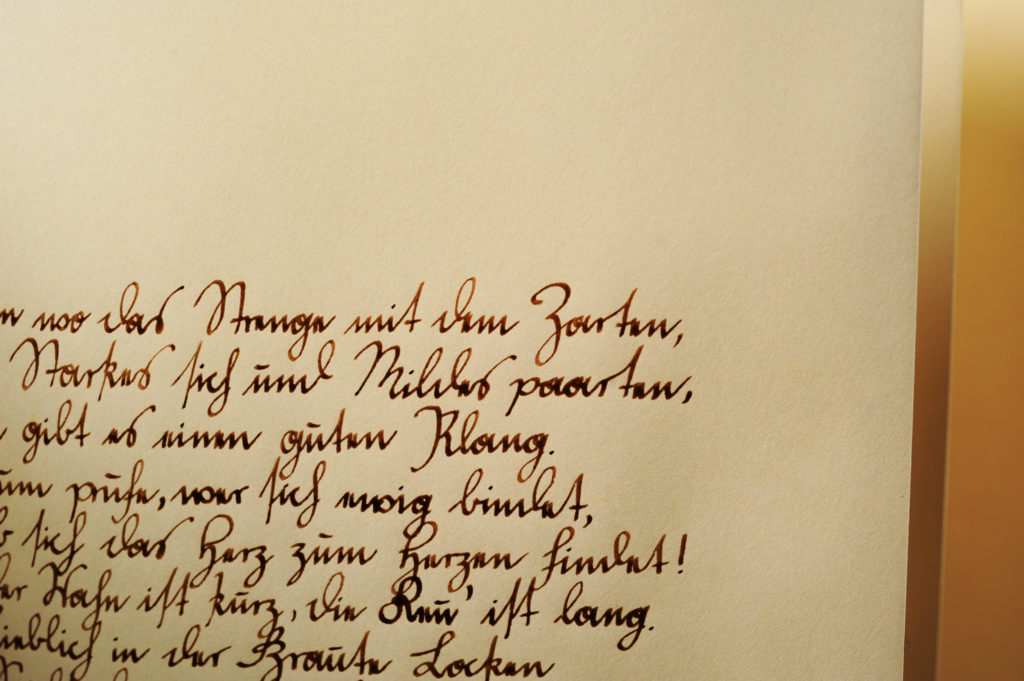 wo das Strenge mit dem Zarten,
Starkes sich und Mildes paarten,
gibt es einen guten Klang.
um prüfe, wer sich ewig bindet,
b sich das Herz zum Herzen findet!
er Wahn ist kurz, die Reu' ist lang.
ieblich in der Bräute Locken